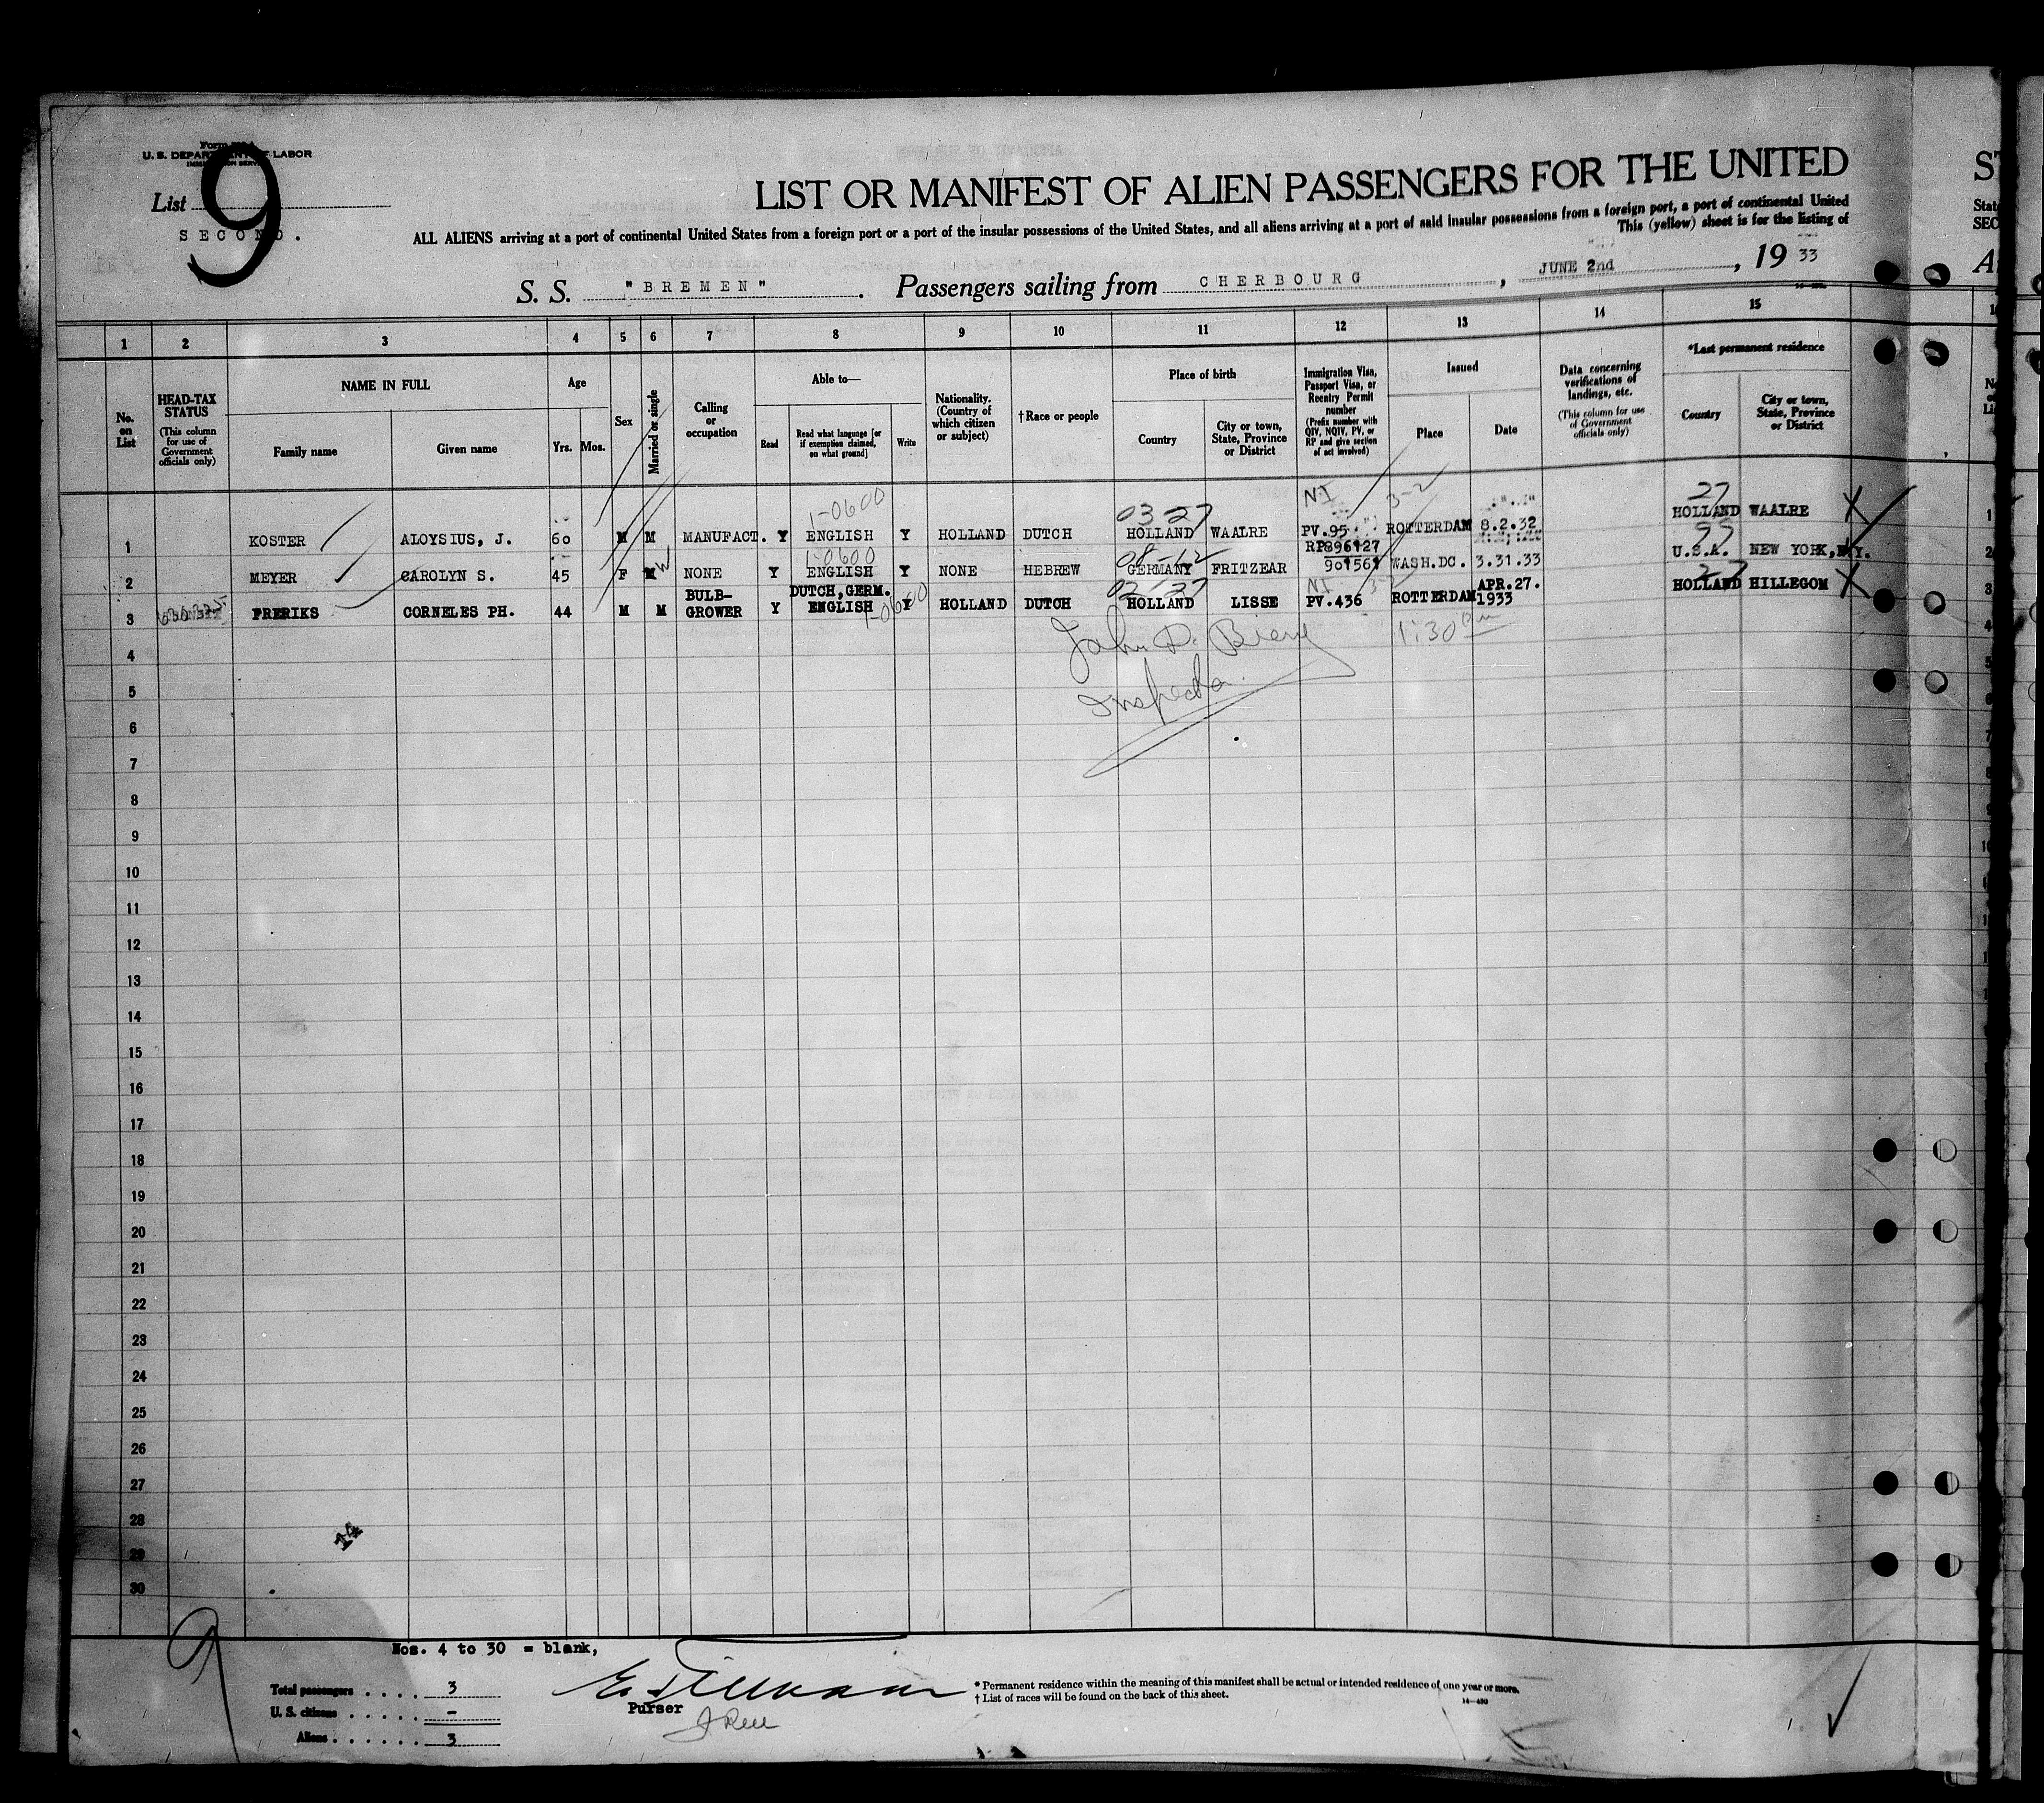 U. S. DEPARTMENT OF LABOR
IMMIGRATION SERVICE
List 9
SECOND.
LIST OR MANIFEST OF ALIEN PASSENGERS FOR THE UNITED
ALL ALIENS arriving at a port of continental United States from a foreign port or a port of the insular possessions of the United States, and all aliens arriving at a port of said insular possessions from a foreign port, a port of continental United
This (yellow) sheet is for the listing of
S. S. "BREMEN" . Passengers sailing from CHERBOURG , JUNE 2nd , 19 33
1 2 3 4 5 6 7 8 9 10 11 12 13 14 15
No. on List
HEAD-TAX STATUS (This column for use of Government officials only)
NAME IN FULL
Family name Given name
Age
Yrs. Mos.
Sex
Married or single
Calling or occupation
Able to—
Read Read what language [or if exemption claimed, on what ground] Write
Nationality. (Country of which citizen or subject)
† Race or people
Place of birth
Country City or town, State, Province or District
Immigration Visa, Passport Visa, or Reentry Permit number (Prefix number with QIV, NQIV, PV, or RP and give section of act involved)
Issued
Place Date
Data concerning verifications of landings, etc. (This column for use of Government officials only)
*Last permanent residence
Country City or town, State, Province or District
1-0600 03 27 NI 3-2 27
1 KOSTER ALOYSIUS, J. 60 M M MANUFACT. Y ENGLISH Y HOLLAND DUTCH HOLLAND WAALRE PV.95 ROTTERDAM 8.2.32 HOLLAND WAALRE X
1-0600 08-12 RP896127 99
2 MEYER CAROLYN S. 45 F M W NONE Y ENGLISH Y NONE HEBREW GERMANY FRITZEAR 901561 WASH.DC. 3.31.33 U.S.A. NEW YORK, N.Y.
BULB- DUTCH,GERM. 02-27 NI 3-2 APR.27. 27
3 FRERIKS CORNELES PH. 44 M M GROWER Y ENGLISH Y HOLLAND DUTCH HOLLAND LISSE PV.436 ROTTERDAM 1933 HOLLAND HILLEGOM X
1-0600
4
John D. 1:30 pm
5
Inspector
6
7
8
9
10
11
12
13
14
15
16
17
18
19
20
21
22
23
24
25
26
27
28
14
29
30
9
Nos. 4 to 30 = blank,
Total passengers . . . . 3
U. S. citizens . . . . . . -
Aliens . . . . . . 3
Purser
* Permanent residence within the meaning of this manifest shall be actual or intended residence of one year or more.
† List of races will be found on the back of this sheet.
14—430